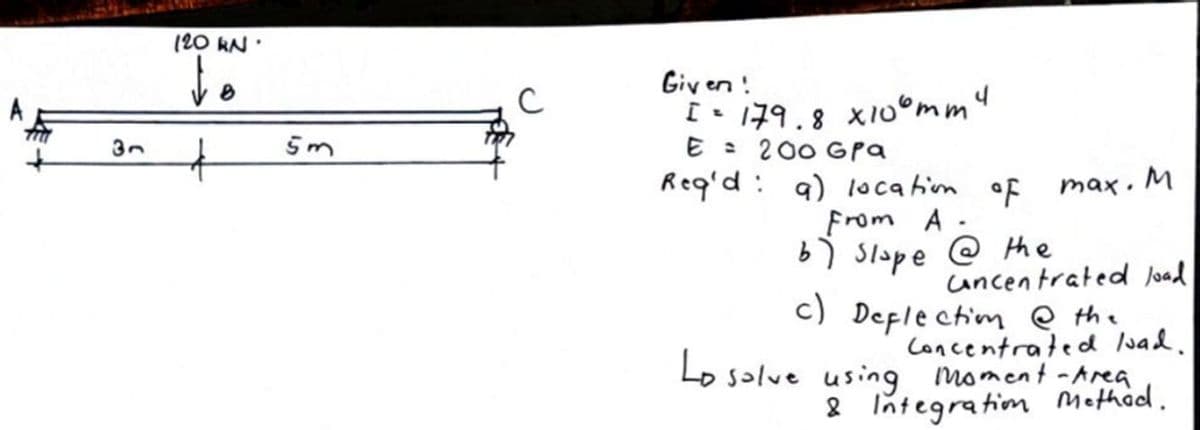 120 kN.
B
A
C
3m
5m
Given:
I = 179.8 x10⁶mm⁴
E = 200 GPa
Req'd : a) location of max. M
From A.
b) Slope @ the
concentrated load
c) Deflection @ the
Concentrated load.
Lo solve using Moment-Area
& Integration Method.